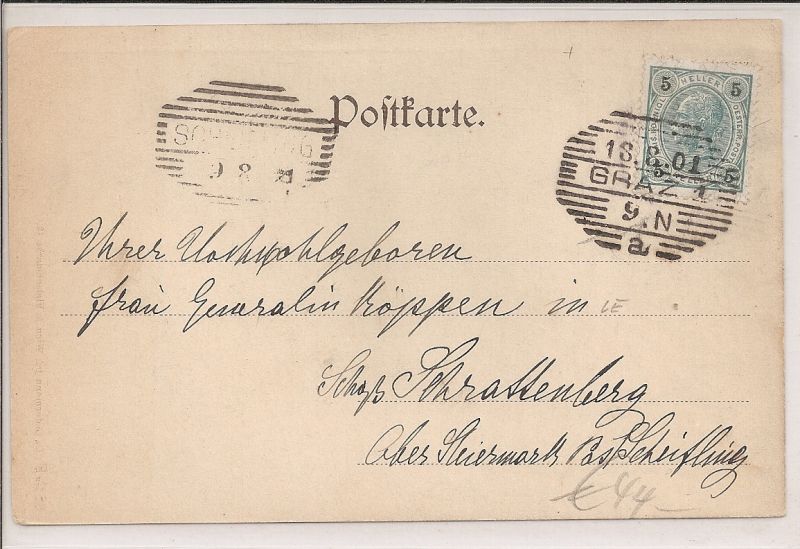 Postkarte.
5 HELLER 5
18.8.01
GRAZ 1
9.N
a
9 8
Ihrer Hochwohlgeboren
Frau Generalin Köppen in
Schloß Schrattenberg
Ober Steiermark Post Scheifling
44